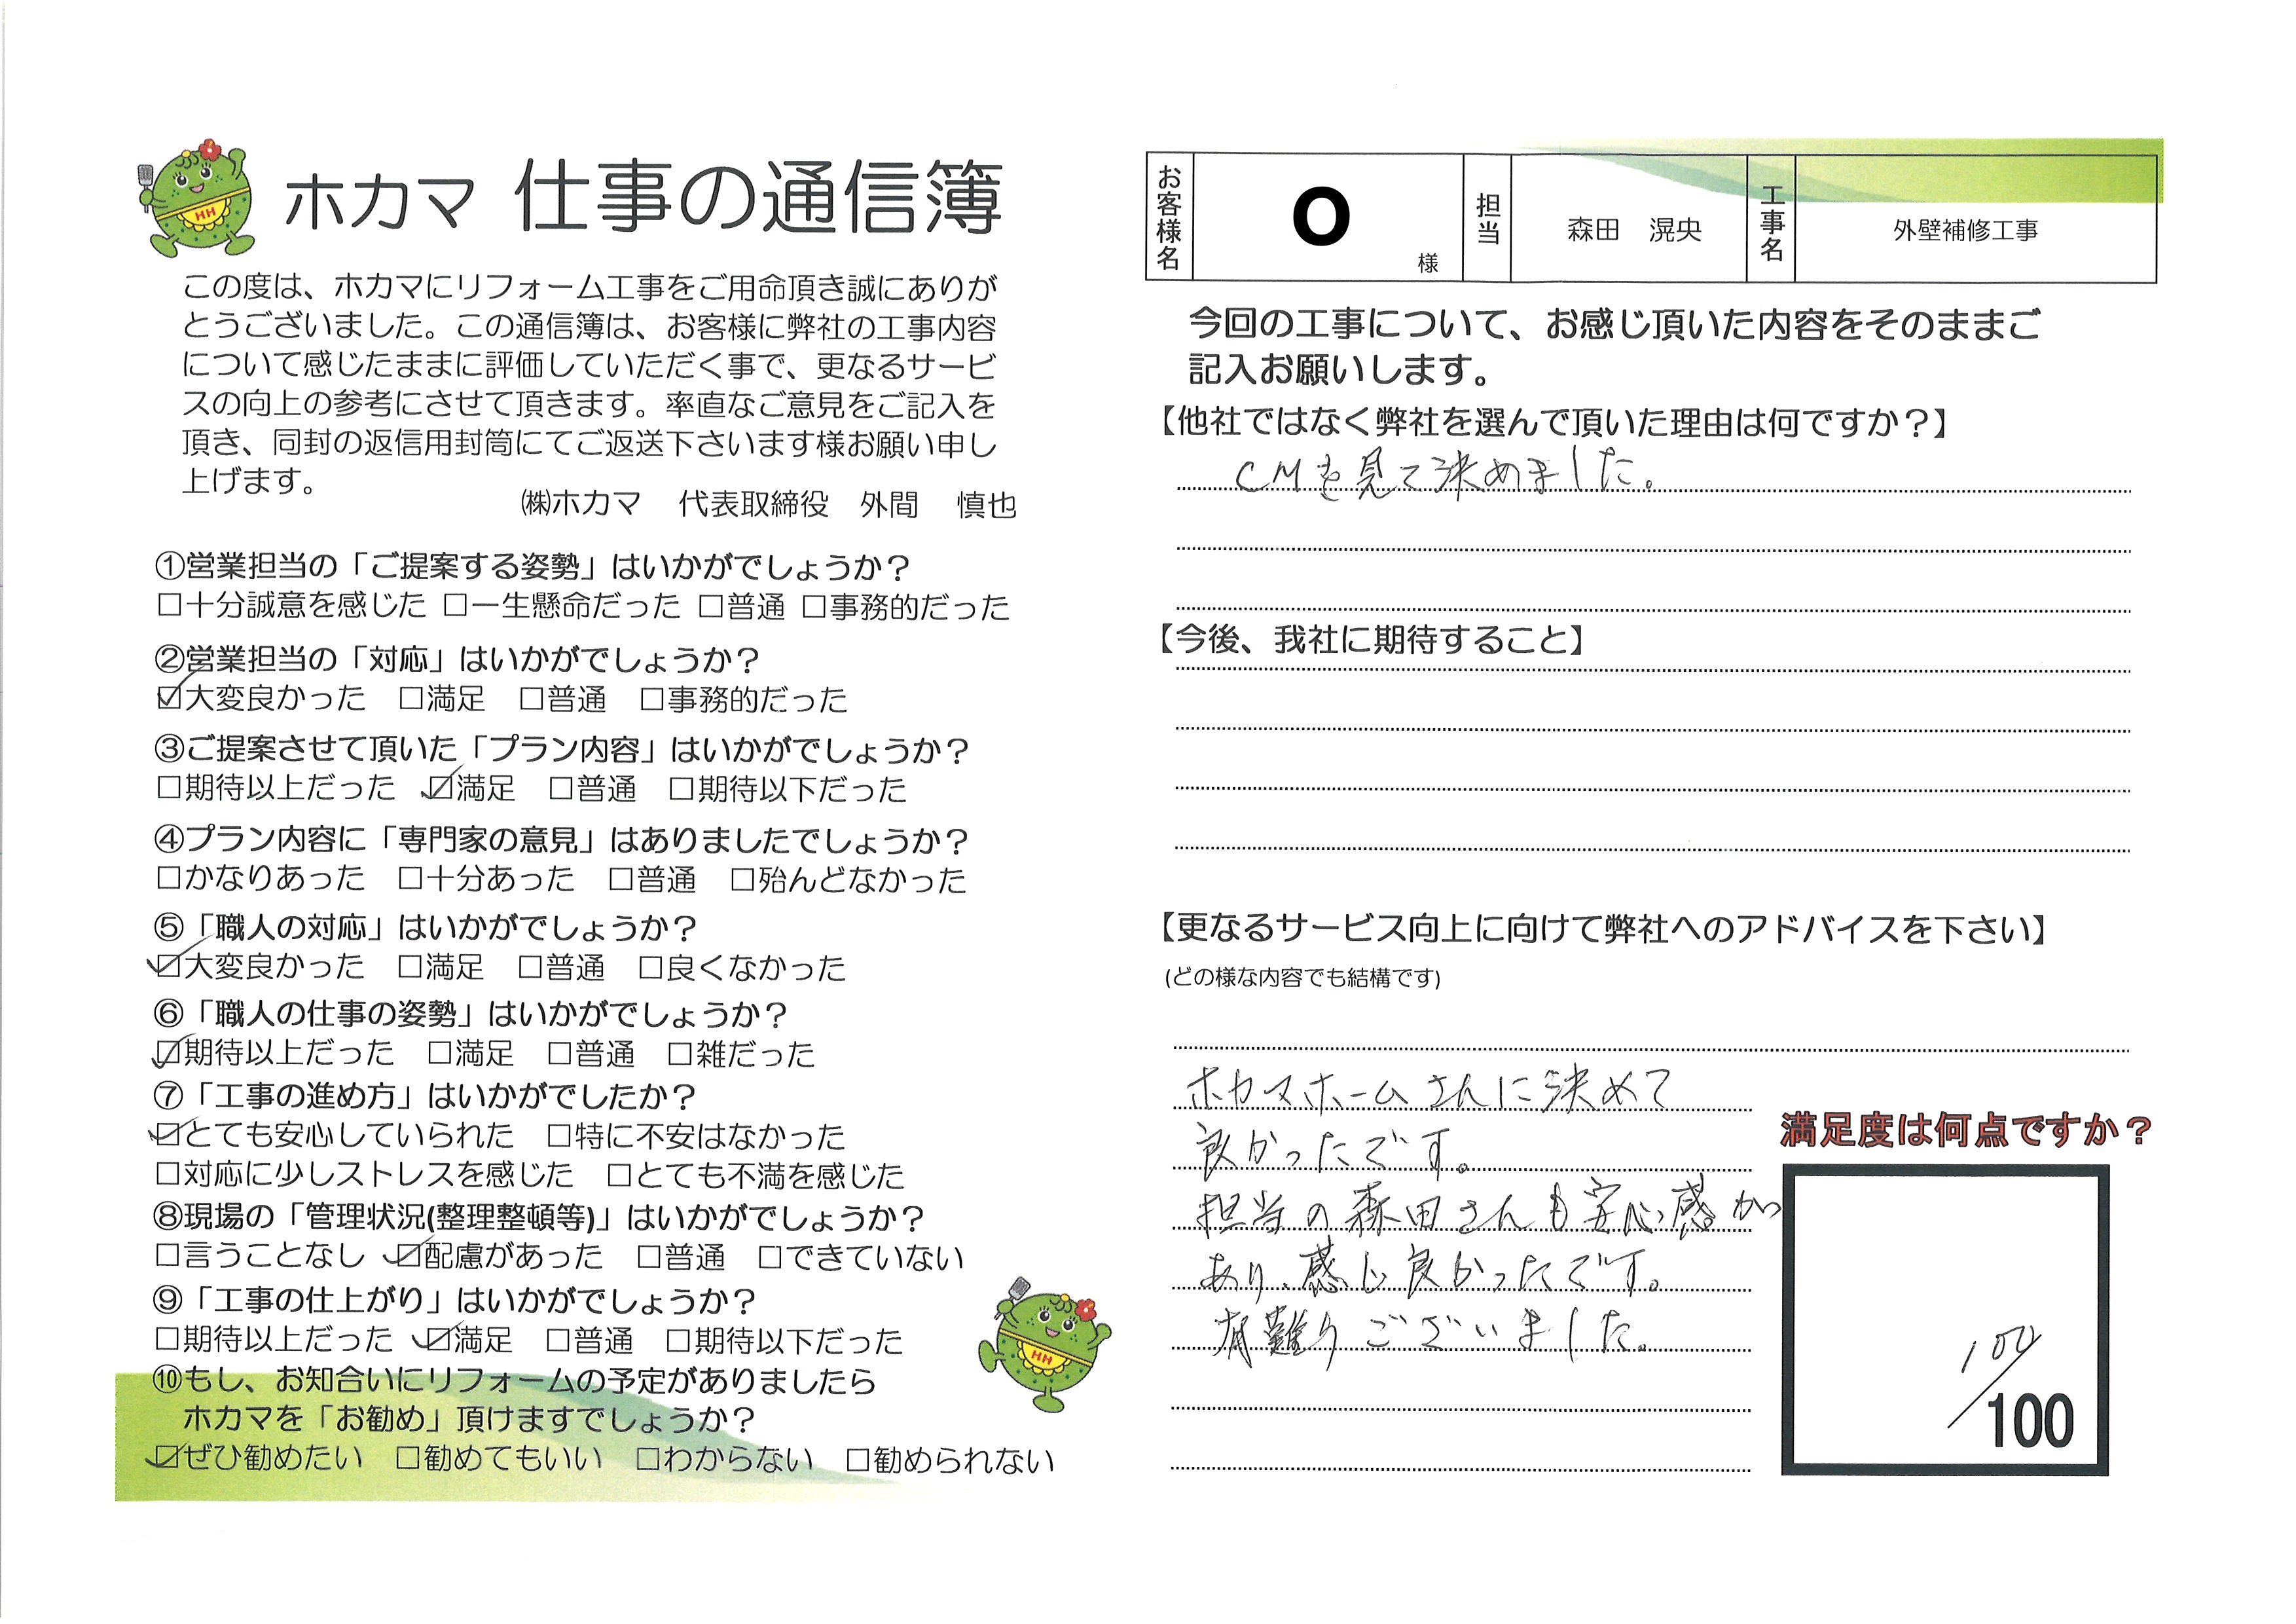 ホカマ 仕事の通信簿
この度は、ホカマにリフォーム工事をご用命頂き誠にありが
とうございました。この通信簿は、お客様に弊社の工事内容
について感じたままに評価していただく事で、更なるサービ
スの向上の参考にさせて頂きます。率直なご意見をご記入を
頂き、同封の返信用封筒にてご返送下さいます様お願い申し
上げます。
㈱ホカマ 代表取締役 外間 慎也
①営業担当の「ご提案する姿勢」はいかがでしょうか？
□十分誠意を感じた □一生懸命だった □普通 □事務的だった
②営業担当の「対応」はいかがでしょうか？
☑大変良かった □満足 □普通 □事務的だった
③ご提案させて頂いた「プラン内容」はいかがでしょうか？
□期待以上だった ☑満足 □普通 □期待以下だった
④プラン内容に「専門家の意見」はありましたでしょうか？
□かなりあった □十分あった □普通 □殆んどなかった
⑤「職人の対応」はいかがでしょうか？
☑大変良かった □満足 □普通 □良くなかった
⑥「職人の仕事の姿勢」はいかがでしょうか？
☑期待以上だった □満足 □普通 □雑だった
⑦「工事の進め方」はいかがでしたか？
☑とても安心していられた □特に不安はなかった
□対応に少しストレスを感じた □とても不満を感じた
⑧現場の「管理状況(整理整頓等)」はいかがでしょうか？
□言うことなし ☑配慮があった □普通 □できていない
⑨「工事の仕上がり」はいかがでしょうか？
□期待以上だった ☑満足 □普通 □期待以下だった
⑩もし、お知合いにリフォームの予定がありましたら
ホカマを「お勧め」頂けますでしょうか？
☑ぜひ勧めたい □勧めてもいい □わからない □勧められない
HH
HH
お客様名 O 様 担当 森田 滉央 工事名 外壁補修工事
今回の工事について、お感じ頂いた内容をそのままご
記入お願いします。
【他社ではなく弊社を選んで頂いた理由は何ですか？】
CMを見て決めました。
【今後、我社に期待すること】
【更なるサービス向上に向けて弊社へのアドバイスを下さい】
(どの様な内容でも結構です)
ホカマホームさんに決めて
良かったです。
担当の森田さんも安心感が
あり、感じ良かったです。
有難うございました。
満足度は何点ですか？
100
100